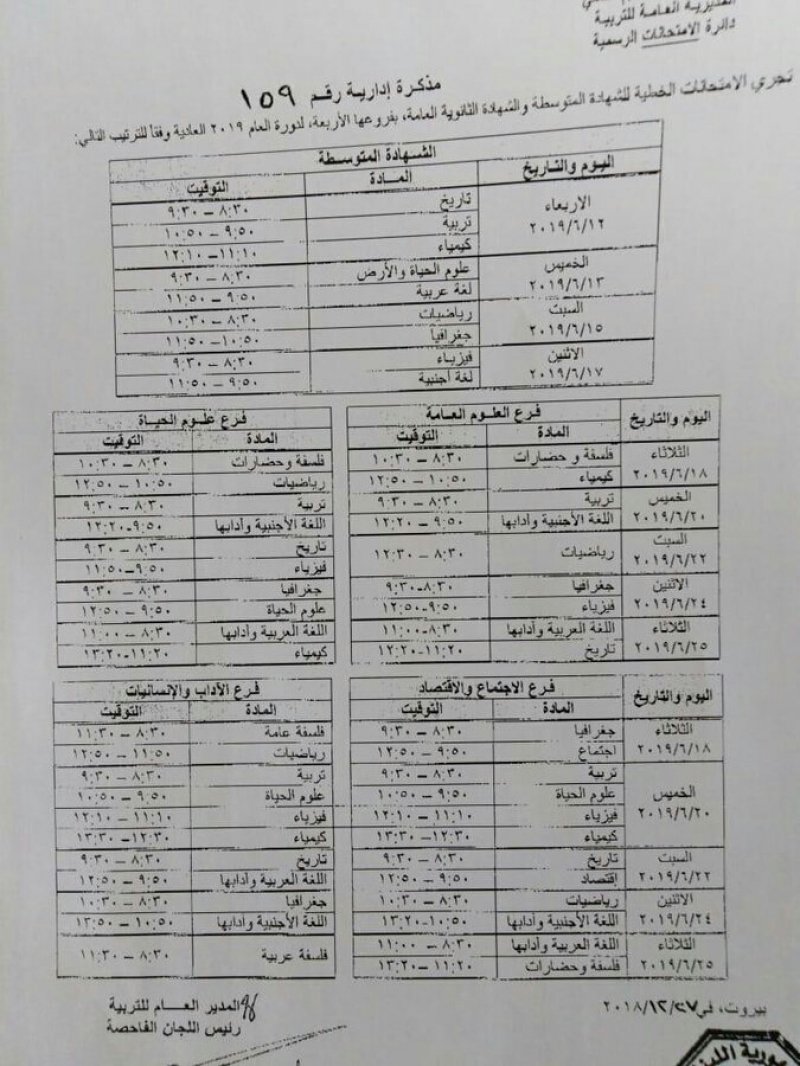 المديرية العامة للتربية
دائرة الامتحانات الرسمية
مذكرة إدارية رقم ١٥٩
تجري الامتحانات الخطية للشهادة المتوسطة والشهادة الثانوية العامة، بفروعها الأربعة، لدورة العام ٢٠١٩ العادية وفقاً للترتيب التالي:
اليوم والتاريخ الشهادة المتوسطة
المادة التوقيت
الاربعاء ٢٠١٩/٦/١٢ تاريخ ٨:٣٠ – ٩:٣٠
تربية ٩:٥٠ – ١٠:٥٠
كيمياء ١١:١٠ – ١٢:١٠
الخميس ٢٠١٩/٦/١٣ علوم الحياة والأرض ٨:٣٠ – ٩:٣٠
لغة عربية ٩:٥٠ – ١١:٥٠
السبت ٢٠١٩/٦/١٥ رياضيات ٨:٣٠ – ١٠:٣٠
جغرافيا ١٠:٥٠ – ١١:٥٠
الاثنين ٢٠١٩/٦/١٧ فيزياء ٨:٣٠ – ٩:٣٠
لغة أجنبية ٩:٥٠ – ١١:٥٠
اليوم والتاريخ فرع العلوم العامة فرع علوم الحياة
المادة التوقيت المادة التوقيت
الثلاثاء ٢٠١٩/٦/١٨ فلسفة و حضارات ٨:٣٠ – ١٠:٣٠ فلسفة وحضارات ٨:٣٠ – ١٠:٣٠
كيمياء ١٠:٥٠ – ١٢:٥٠ رياضيات ١٠:٥٠ – ١٢:٥٠
الخميس ٢٠١٩/٦/٢٠ تربية ٨:٣٠ – ٩:٣٠ تربية ٨:٣٠ – ٩:٣٠
اللغة الأجنبية وآدابها ٩:٥٠ – ١٢:٢٠ اللغة الأجنبية وآدابها ٩:٥٠-١٢:٢٠
السبت ٢٠١٩/٦/٢٢ رياضيات ٨:٣٠ – ١٢:٣٠ تاريخ ٨:٣٠ – ٩:٣٠
فيزياء ٩:٥٠–١١:٥٠
الاثنين ٢٠١٩/٦/٢٤ جغرافيا ٨:٣٠-٩:٣٠ جغرافيا ٨:٣٠ – ٩:٣٠
فيزياء ٩:٥٠-١٢:٥٠ علوم الحياة ٩:٥٠ – ١٢:٥٠
الثلاثاء ٢٠١٩/٦/٢٥ اللغة العربية وآدابها ٨:٣٠-١١:٠٠ اللغة العربية وآدابها ٨:٣٠ – ١١:٠٠
تاريخ ١١:٢٠-١٢:٢٠ كيمياء ١١:٢٠-١٣:٢٠
اليوم والتاريخ فرع الاجتماع والاقتصاد فرع الآداب والإنسانيات
المادة التوقيت المادة التوقيت
الثلاثاء ٢٠١٩/٦/١٨ جغرافيا ٨:٣٠ – ٩:٣٠ فلسفة عامة ٨:٣٠ – ١١:٣٠
اجتماع ٩:٥٠ – ١٢:٥٠ رياضيات ١١:٥٠ – ١٢:٥٠
الخميس ٢٠١٩/٦/٢٠ تربية ٨:٣٠ – ٩:٣٠ تربية ٨:٣٠ – ٩:٣٠
علوم الحياة ٩:٥٠ – ١٠:٥٠ علوم الحياة ٩:٥٠ – ١٠:٥٠
فيزياء ١١:١٠ – ١٢:١٠ فيزياء ١١:١٠ – ١٢:١٠
كيمياء ١٢:٣٠ – ١٣:٣٠ كيمياء ١٢:٣٠ – ١٣:٣٠
السبت ٢٠١٩/٦/٢٢ تاريخ ٨:٣٠ – ٩:٣٠ تاريخ ٨:٣٠ – ٩:٣٠
إقتصاد ٩:٥٠ – ١٢:٥٠ اللغة العربية وآدابها ٩:٥٠ – ١٢:٥٠
الاثنين ٢٠١٩/٦/٢٤ رياضيات ٨:٣٠ – ١٠:٣٠ جغرافيا ٨:٣٠ – ١٠:٣٠
اللغة الأجنبية وآدابها ١٠:٥٠-١٣:٢٠ اللغة الأجنبية وآدابها ١٠:٥٠ – ١٣:٥٠
الثلاثاء ٢٠١٩/٦/٢٥ اللغة العربية وآدابها ٨:٣٠ – ١١:٠٠ فلسفة عربية ٨:٣٠ – ١١:٣٠
فلسفة وحضارات ١١:٢٠ – ١٣:٢٠
بيروت، في ٢٠١٨/١٢/٢٧
المدير العام للتربية
رئيس اللجان الفاحصة